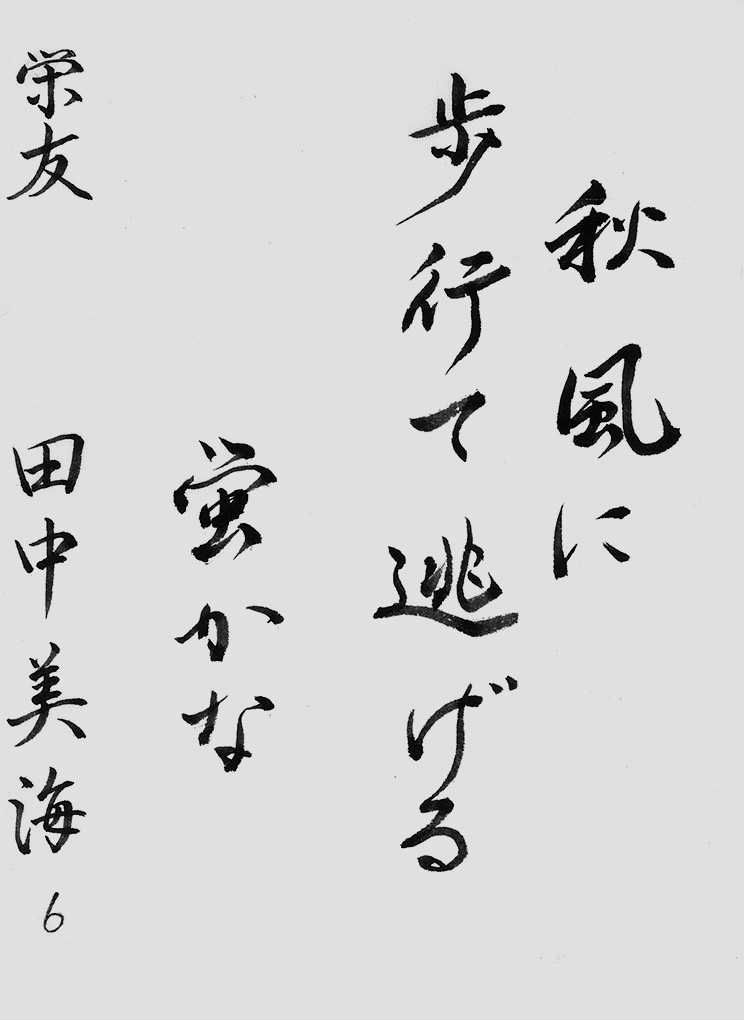 秋風に
歩行て逃げる
蛍かな
栄友 田中美海 6